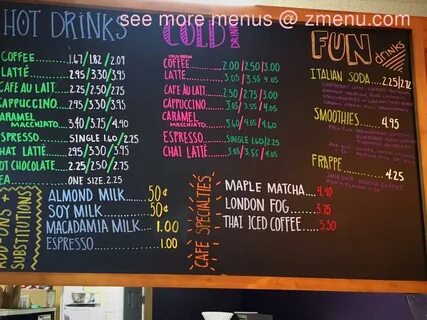 see more menus @ zmenu.com
HOT DRINKS
COFFEE 1.67/1.82/2.09
LATTÉ 2.95/3.30/3.95
CAFE AU LAIT 2.25/2.50/2.75
CAPPUCCINO 2.95/3.30/3.95
CARAMEL MACCHIATO 3.40/3.75/4.40
ESPRESSO SINGLE 1.60/2.25
CHAI LATTE 2.95/3.30/3.95
HOT CHOCOLATE 2.25/2.50/2.75
TEA ONE SIZE 2.25
ADD-ONS + SUBSTITUTIONS
ALMOND MILK 50¢
SOY MILK 50¢
MACADAMIA MILK 1.00
ESPRESSO 1.00
COLD DRINKS
COFFEE 2.00/2.50/3.00
LATTE 3.05/3.55/4.05
CAFE AU LAIT 2.25/2.50/2.75
CAPPUCCINO 3.05/3.55/4.05
CARAMEL MACCHIATO 3.60/4.05/4.60
ESPRESSO SINGLE 1.60/2.25
CHAI LATTE 3.05/3.55/4.05
CAFE SPECIALTIES
MAPLE MATCHA 4.40
LONDON FOG 3.75
THAI ICED COFFEE 3.30
FUN drinks
ITALIAN SODA 2.25/2.72
SMOOTHIES 4.95
FRAPPE 4.25